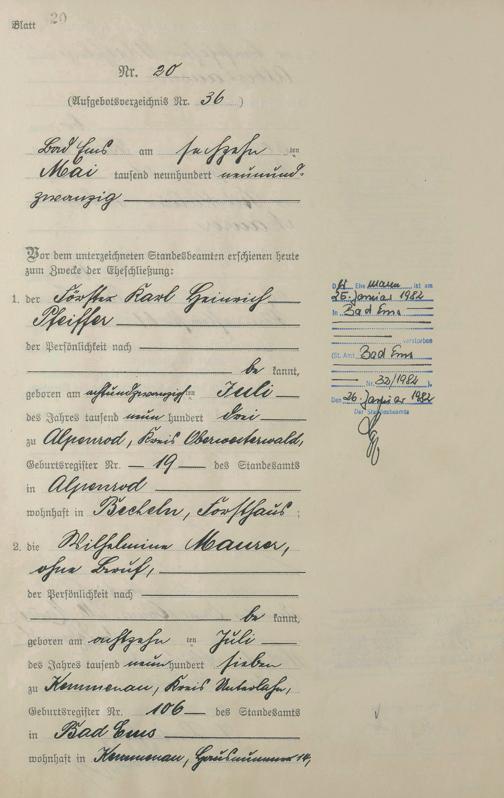 Blatt 20
Nr. 20
(Aufgebotsverzeichnis Nr. 36)
Bad Ems am sechzehn ten
Mai tausend neunhundert neunund-
zwanzig
Vor dem unterzeichneten Standesbeamten erschienen heute
zum Zwecke der Eheschließung:
1. der Förster Karl Heinrich
Pfeiffer
der Persönlichkeit nach
be kannt,
geboren am achtundzwanzigsten Juli
des Jahres tausend neun hundert drei
zu Alpenrod, Kreis Oberwesterwald,
Geburtsregister Nr. 19 des Standesamts
in Alpenrod
wohnhaft in Becheln, Forsthaus;
2. die Wilhelmine Maurer,
ohne Beruf,
der Persönlichkeit nach
be kannt,
geboren am achtzehn ten Juli
des Jahres tausend neun hundert sieben
zu Kemmenau, Kreis Unterlahn,
Geburtsregister Nr. 106 des Standesamts
in Bad Ems
wohnhaft in Kemmenau, Hausnummer 14,
Der Ehemann ist am
26. Januar 1982
in Bad Ems
verstorben
(St. Amt Bad Ems
Nr. 32/1982).
Den 26. Januar 1982
Der Standesbeamte